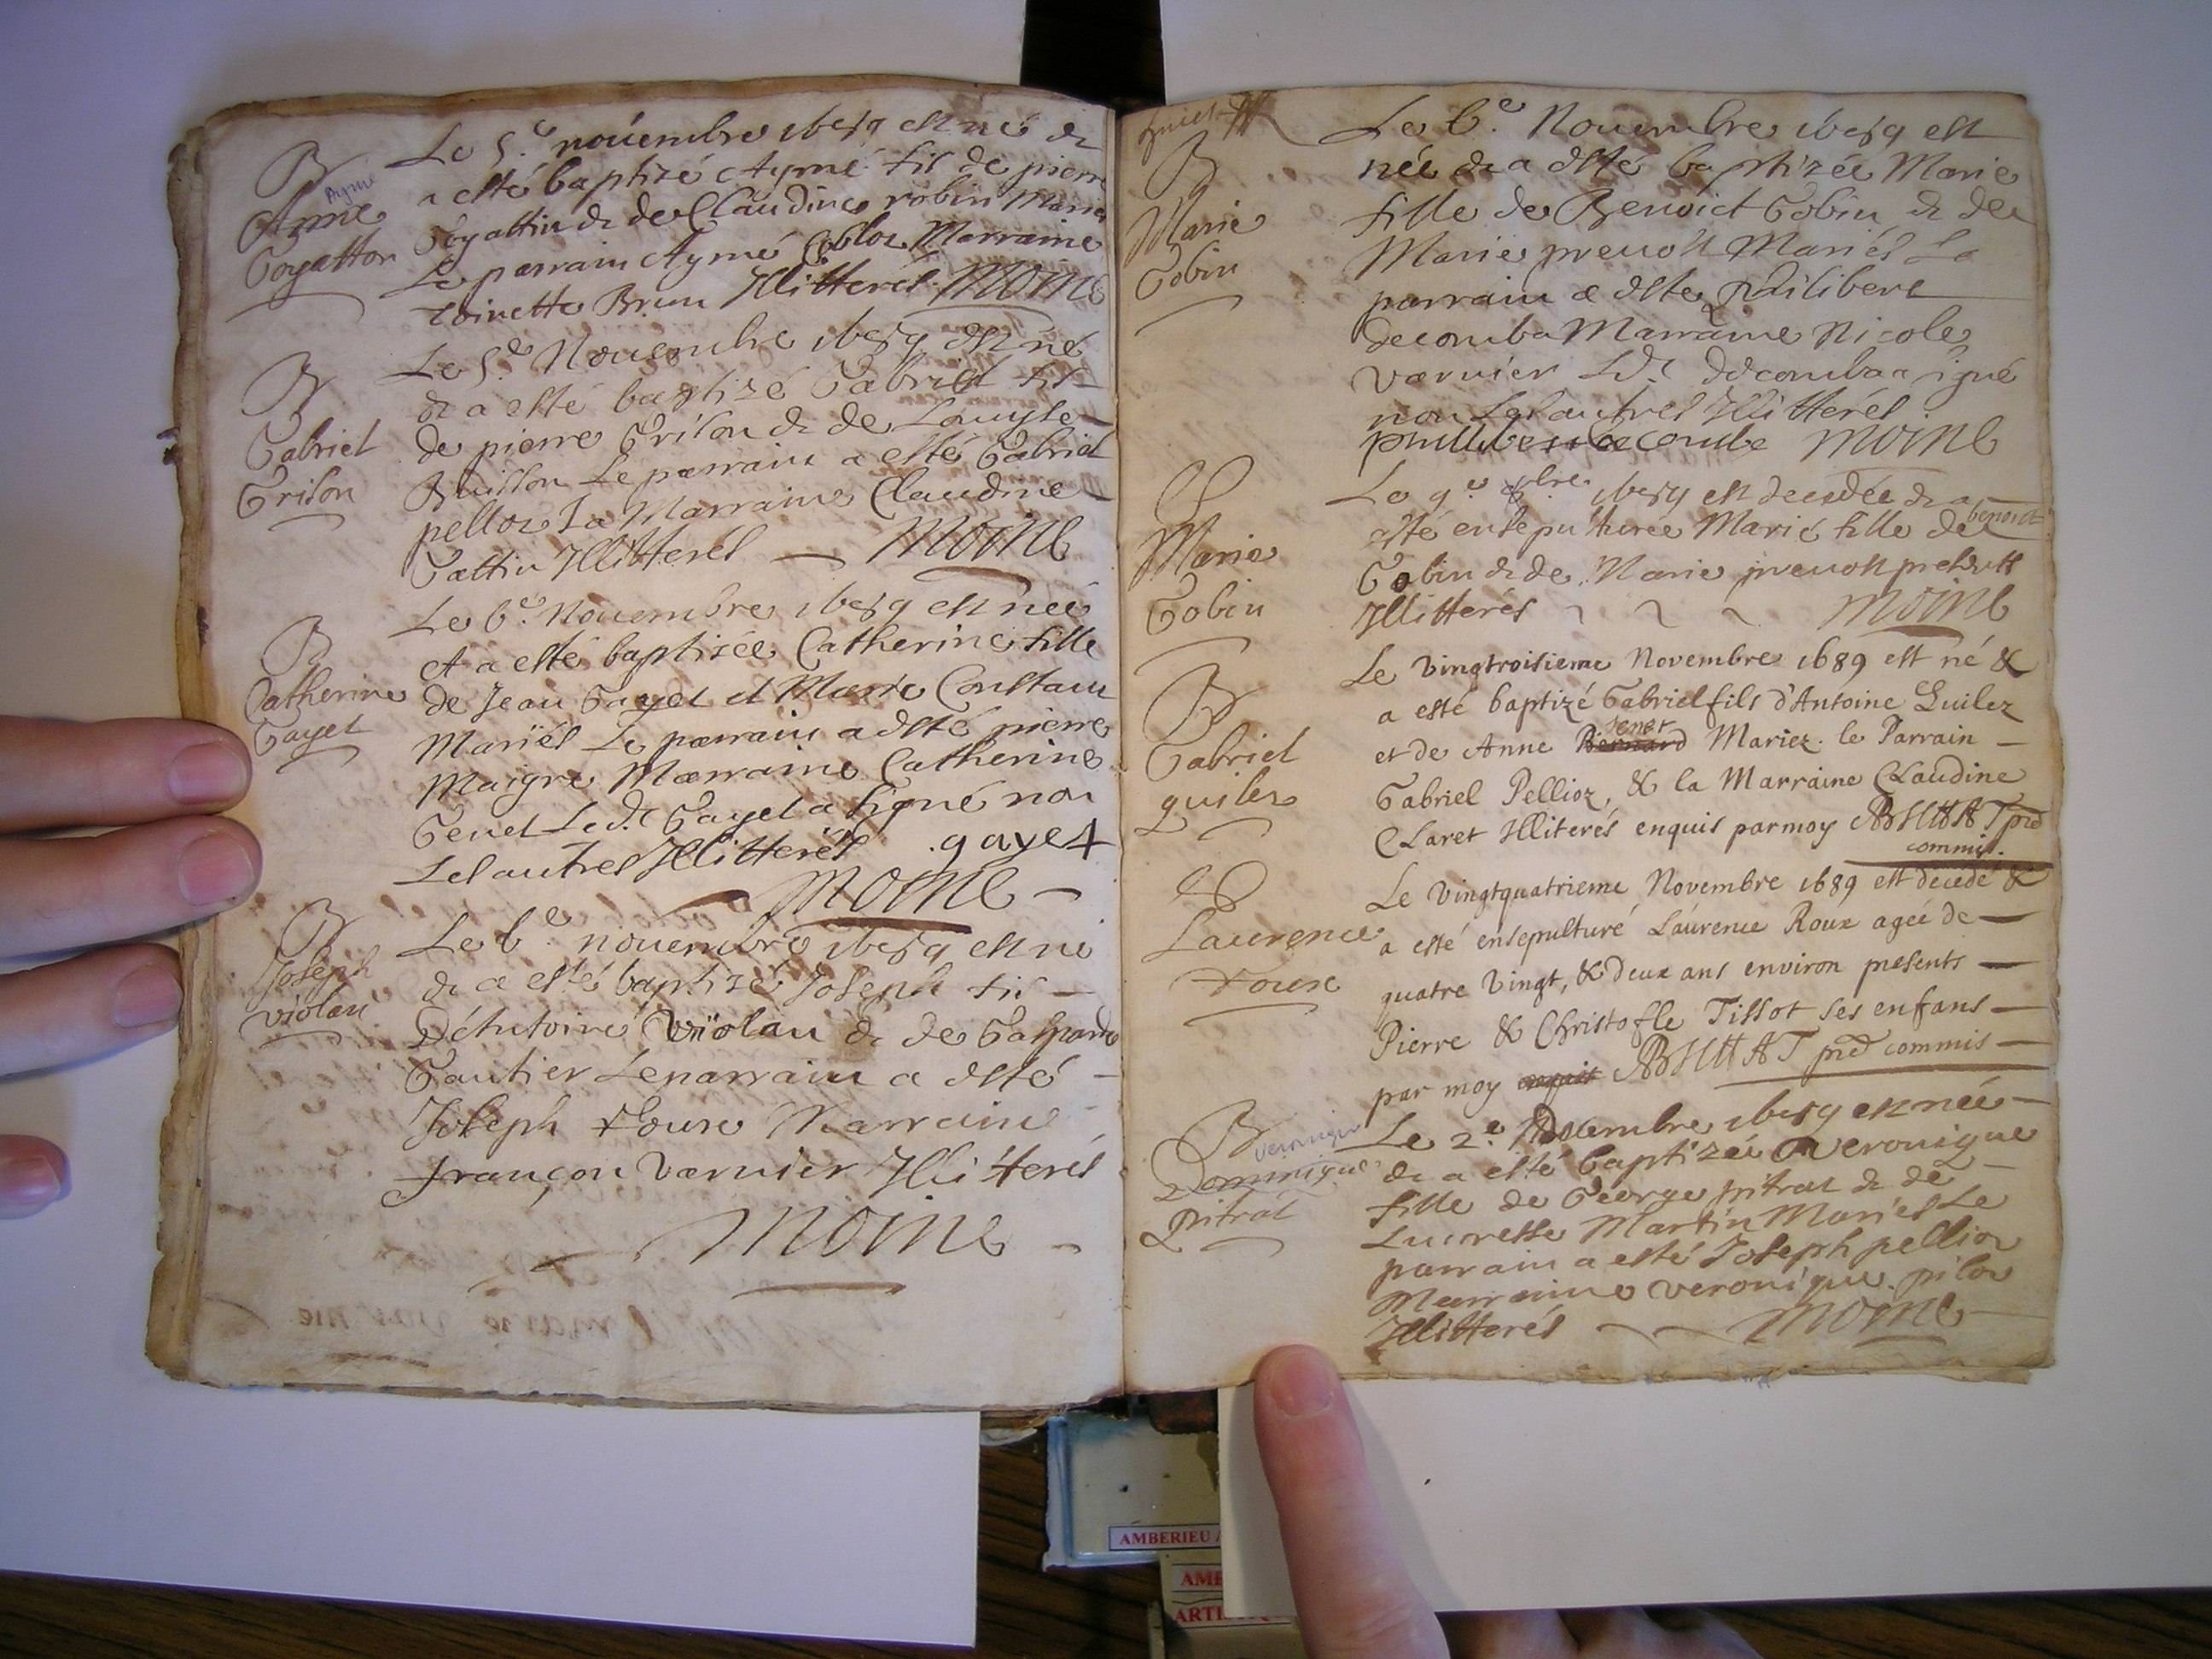 B
Ayme
Anne
Goyatton
Le 5.e nouembre 1689 est né &
a esté baptizé Aymé fils de pierre
Goyattin & de Claudine robin Mariés
Le parrain Aymé Marraine
toinette Brun Illitterés. MOINE
B
Gabriel
Grison
Le 5.e Nouembre 1689 est né
& a esté baptizé Gabriel fils
de pierre Grison & de Louyse
Buisson Le parrain a esté Gabriel
pelloz La Marraine Claudine
Gattin Illitterés — MOINE
B
Catherine
Gayet
Le 6.e Nouembre 1689 est née
et a esté baptisée Catherine fille
de Jean Gayet et Marie Constain
Mariés Le parrain a esté pierre
Maigre Marraine Catherine
Genet Led.t Gayet a signé non
Les autres Illitterés . gayet
— MOINE —
B
Joseph
violan
Le 6.e nouembre 1689 est né
& a esté baptizé Joseph fils —
D'Antoine Violan & de Gasparde
Gautier Le parrain a esté —
Joseph Roux Marraine
françon Varnier Illitterés
— MOINE —
B
Marie
Gobin
Le 6.e Nouembre 1689 est
née & a esté baptizée Marie
fille de Benoict Gobin & de
Marie preuost Mariés Le
parrain a esté philibert
decomba Marraine Nicole
Varnier Led.t decomba a signé
non Les autres Illitterés
phillibert decombe MOINE
Marie
Gobin
Le 9.e 9bre 1689 est decedée & a
esté ensepulturée Marie fille de benoict
Gobin & de Marie preuost presents
Illitterés ~ ~ ~ MOINE
B
Gabriel
quiler
Le vingtroisieme Novembre 1689 est né &
a esté baptizé Gabriel fils d'Antoine Quilez
et de Anne Bernard Genet Mariez. le Parrain —
Gabriel Pellioz, & la Marraine Claudine
Claret Illiterés enquis par moy
commis.
Laurence
roux
Le vingtquatrieme Novembre 1689 est decedé &
a esté ensepulturé Laurence Roux agée de —
quatre vingt, & deux ans environ presents —
Pierre & Christofle Tissot ses enfans —
par moy commis —
B
veronique
Dominique
pitrat
Le 2.e 1689 est née —
& a esté baptizée veronique
fille de George pitrat & de —
Lucresse Martin Mariés Le
parrain a esté Joseph pellioz
Marraine veronique piloz
Illitterés ~ ~ MOINE
AMBERIEU
AMB
ARTE